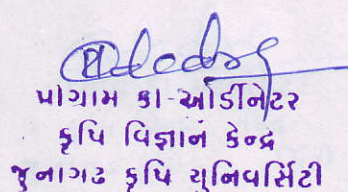 પ્રોગ્રામ કો-ઓર્ડીનેટર
કૃષિ વિજ્ઞાન કેન્દ્ર
જુનાગઢ કૃષિ યુનિવર્સિટી